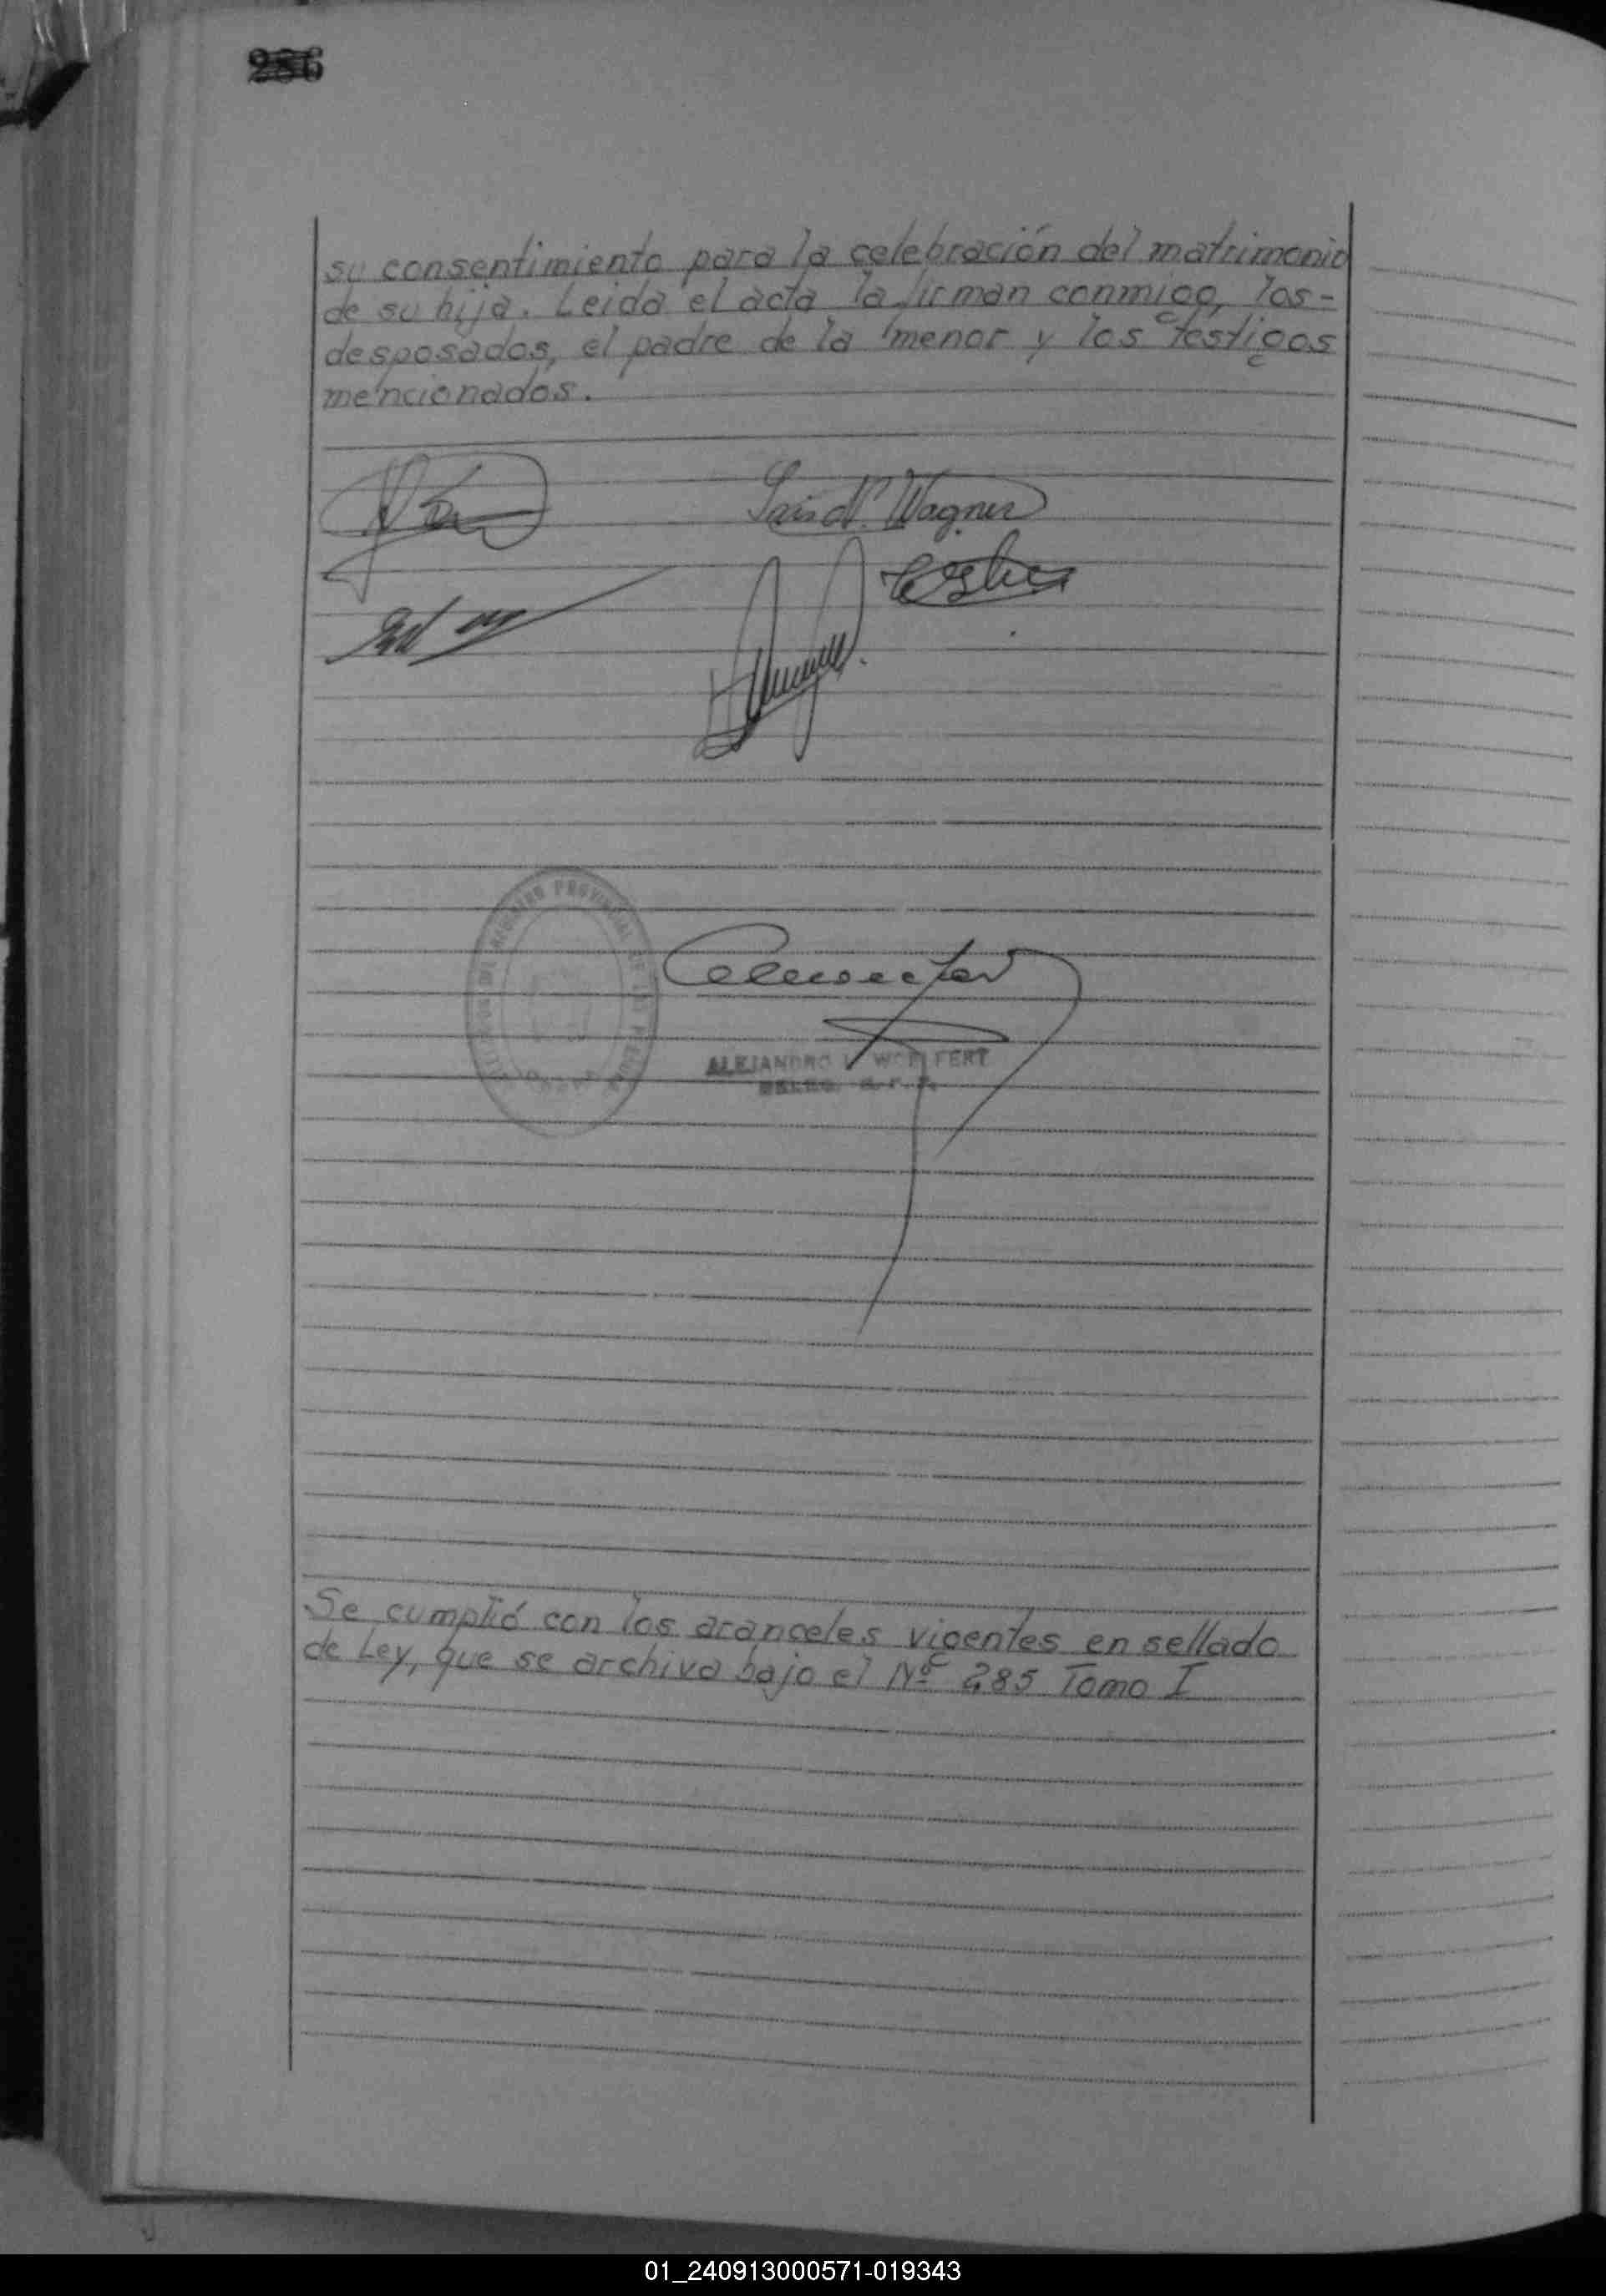 286
su consentimiento para la celebración del matrimonio
de su hija. Leida el acta la firman conmigo, los-
desposados, el padre de la menor y los testigos
mencionados.
Wagner
REGISTRO PROVINCIAL DE LAS PERSONAS
ALEJANDRO WOLFERT
Se cumplió con los aranceles vigentes en sellado
de Ley, que se archiva bajo el Nº 285 Tomo I
01_240913000571-019343